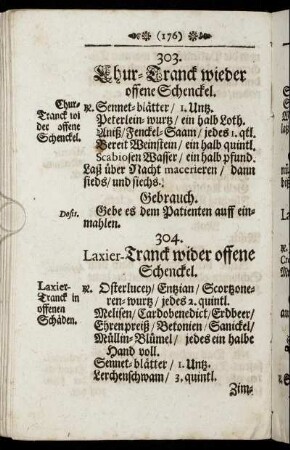 (176)
303.
Chur-Tranck wieder
offene Schenckel.
Chur-
Tranck wi
der offene
Schenckel.
℞. Sennet-blätter / 1. Untz.
Peterlein-wurtz / ein halb Loth.
Aniß / Fenckel-Saam / jedes 1. qtl.
Bereit Weinstein / ein halb quintl.
Scabiosen Wasser / ein halb pfund.
Laß über Nacht macerieren / dann
sieds / und siechs.
Gebrauch.
Dosis.
Gebe es dem Patienten auff ein-
mahlen.
304.
Laxier-Tranck wider offene
Schenckel.
Laxier-
Tranck in
offenen
Schäden.
℞. Osterlucey / Entzian / Scortzone-
ren-wurtz / jedes 2. quintl.
Melisen / Cardobenedict / Erdbeer /
Ehrenpreiß / Betonien / Sanickel /
Müllin-Blümel / jedes ein halbe
Hand voll.
Sennet-blätter / 1. Untz.
Lerchenschwam / 3. quintl.
Zim-